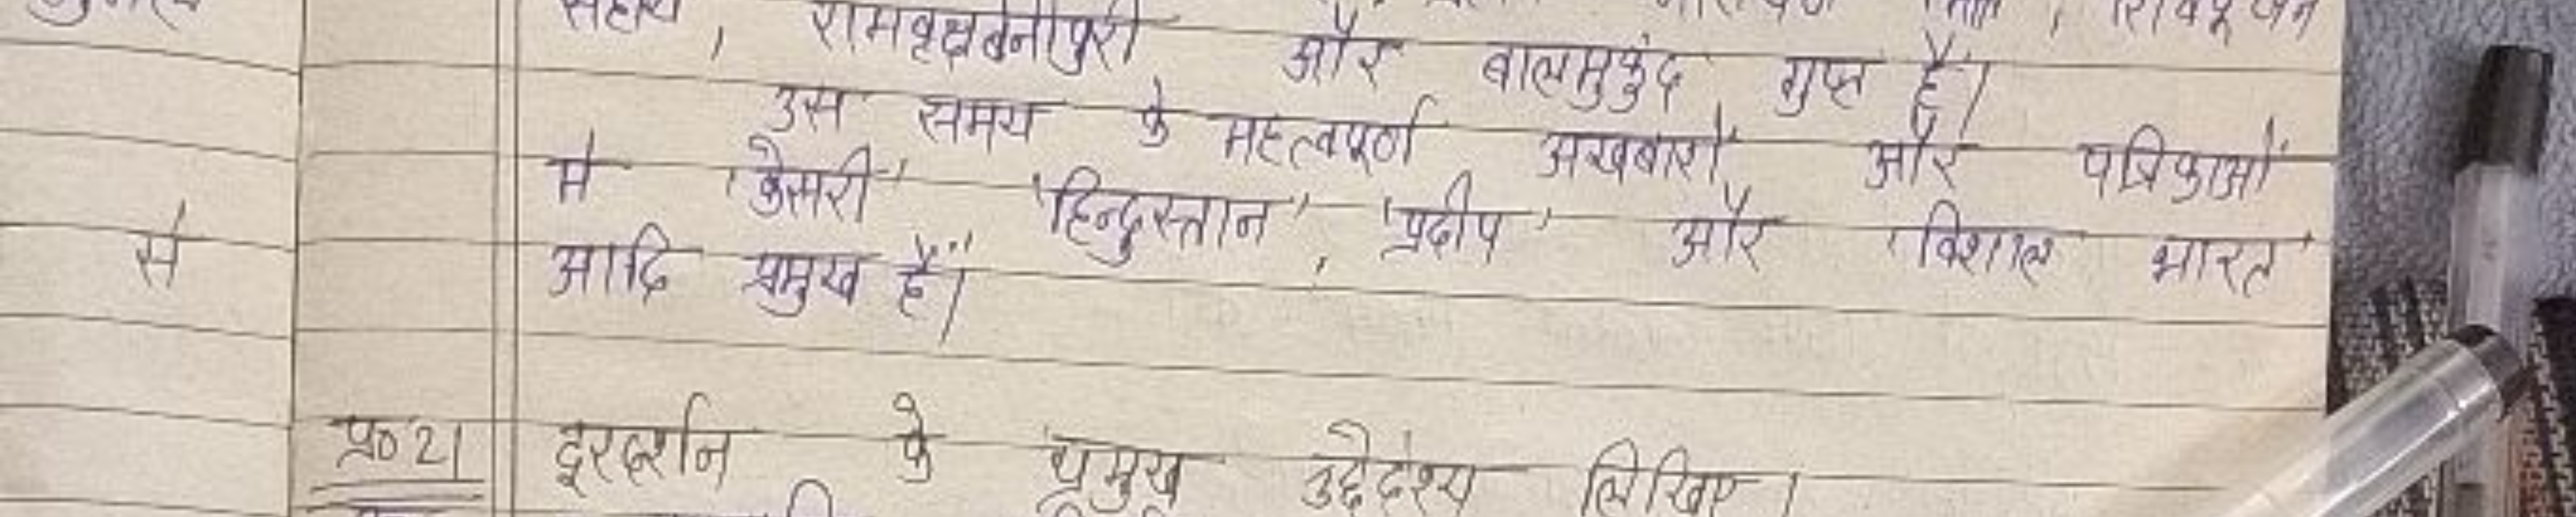 सहाय, रामवृक्षबेनीपुरी और बालमुकुंद गुप्त हैं।
उस समय के महत्वपूर्ण अखबारों और पत्रिकाओं
में 'केसरी' 'हिन्दुस्तान', 'प्रदीप' और 'विशाल भारत'
आदि प्रमुख हैं।
से
प्र० 21 दूरदर्शन के प्रमुख उद्देश्य लिखिए।